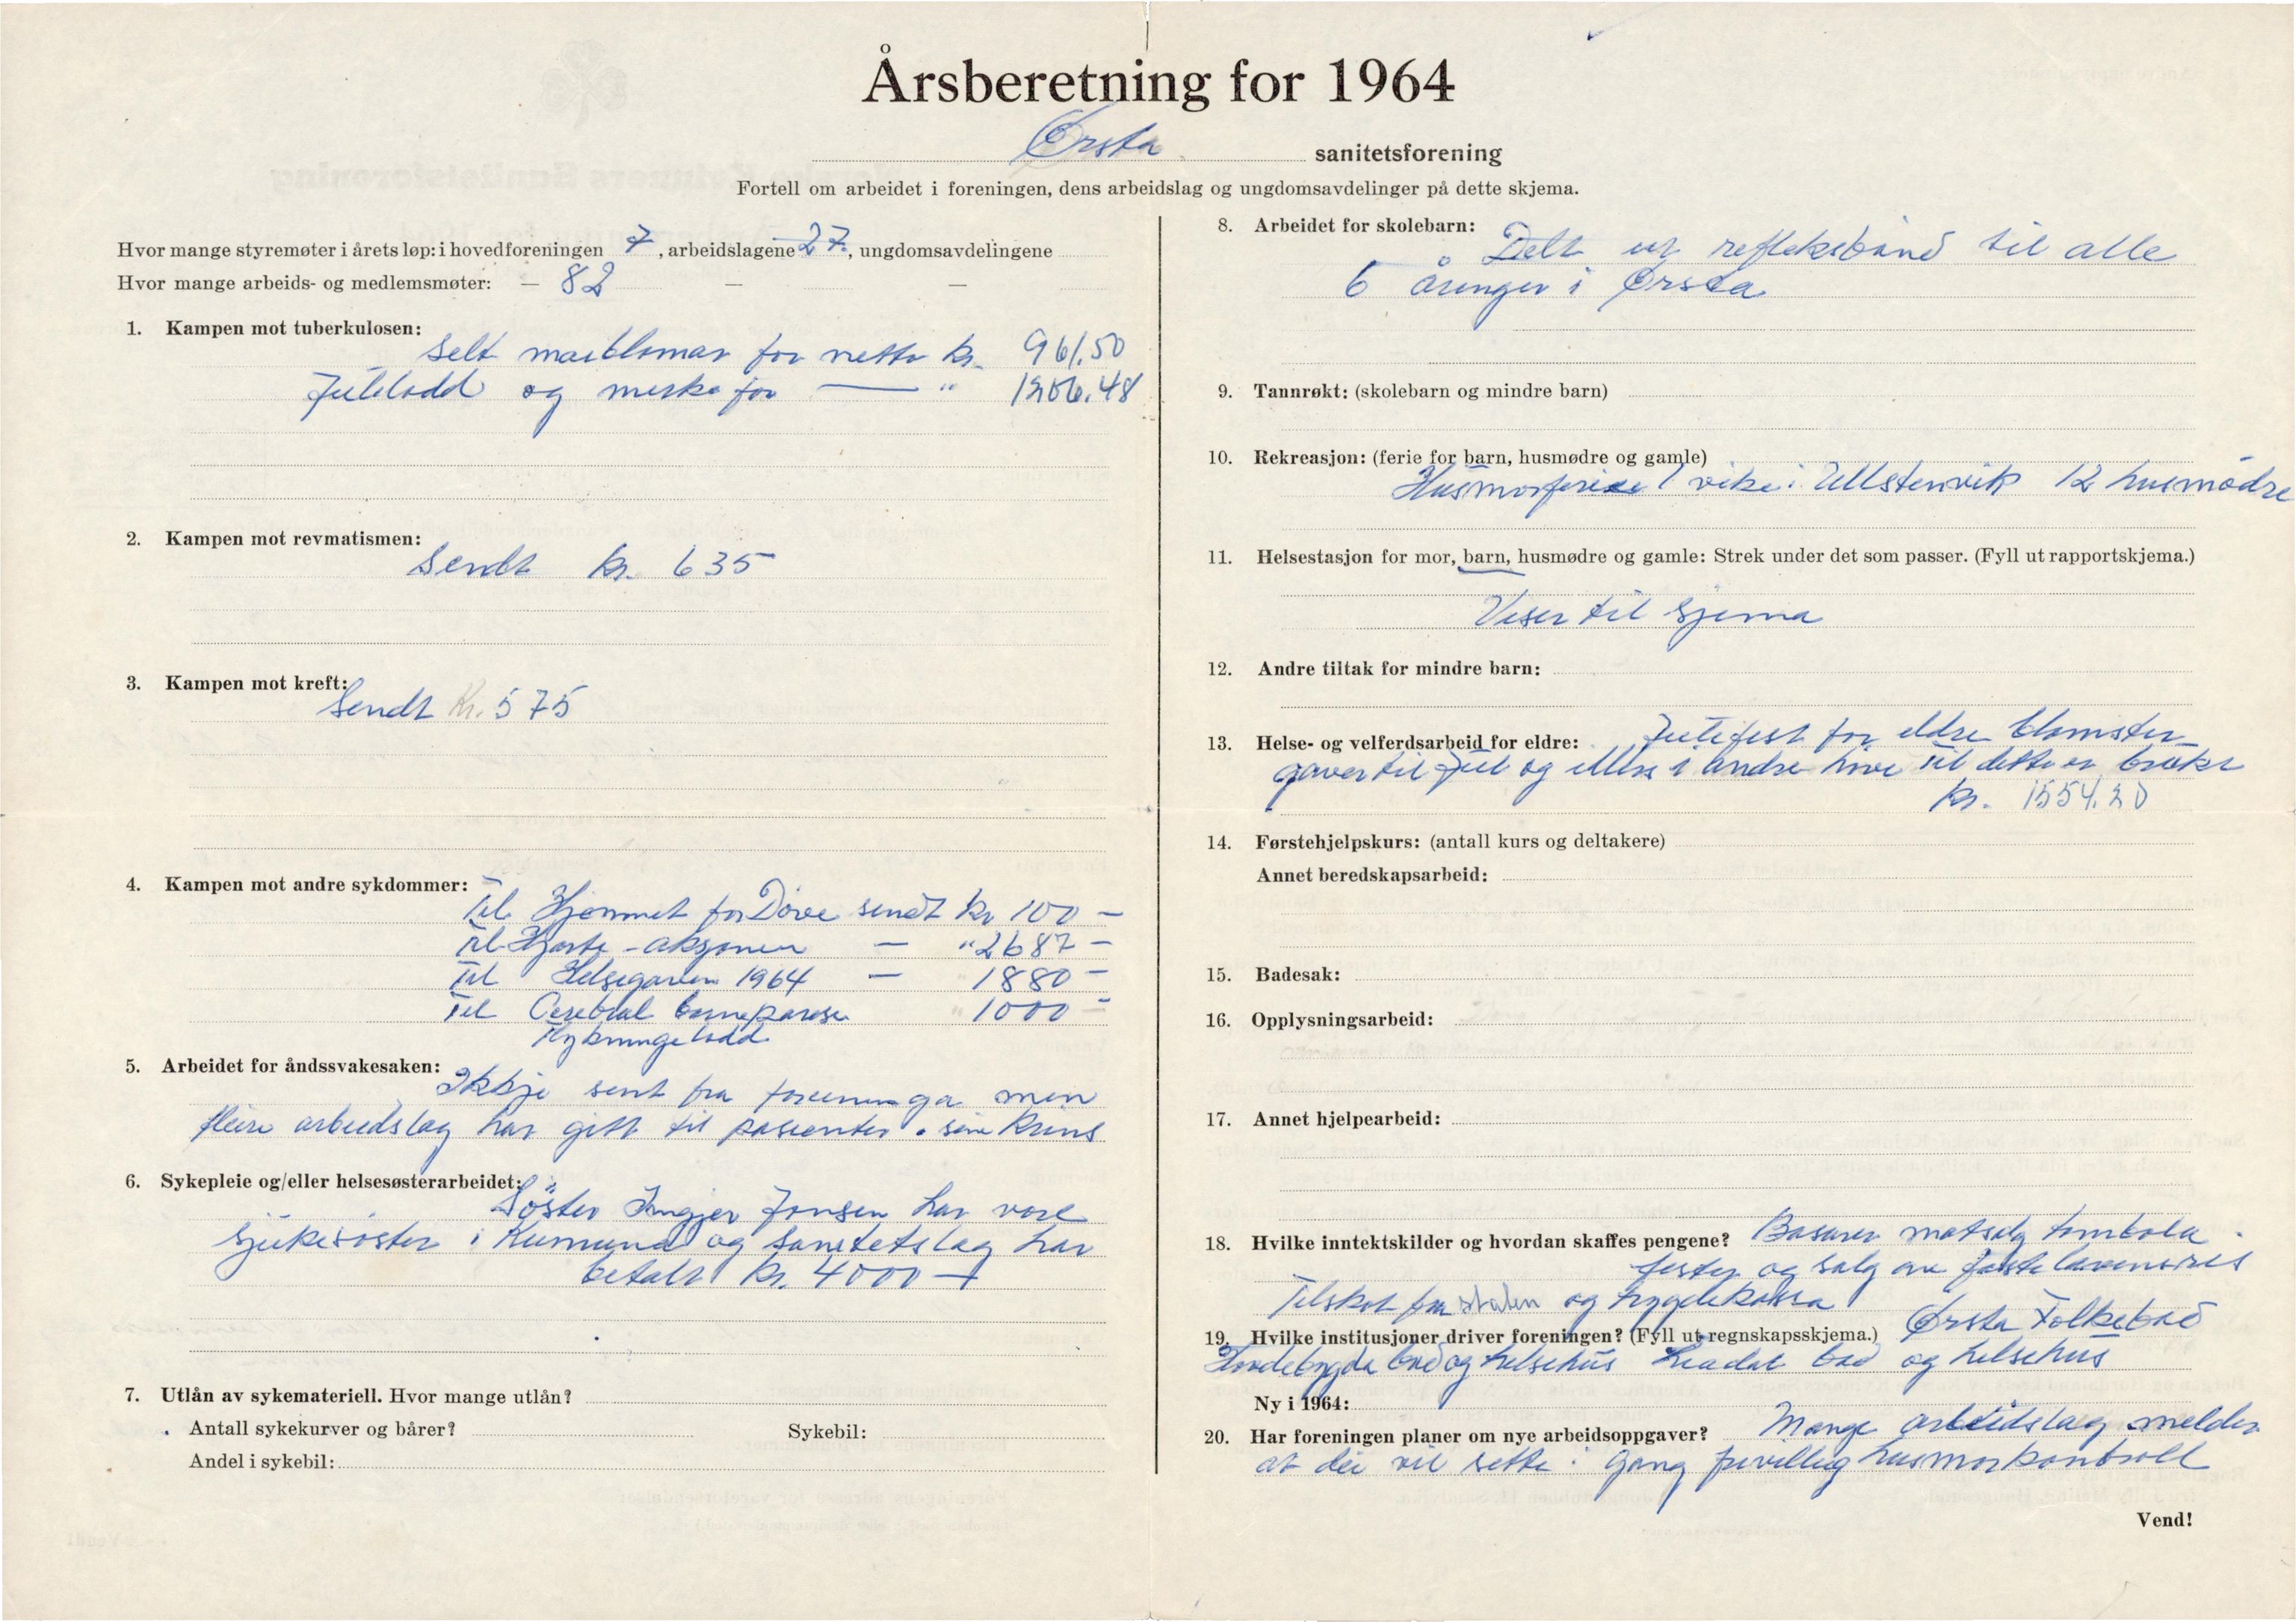 Årsberetning for 1964
Ørsta sanitetsforening
Fortell om arbeidet i foreningen, dens arbeidslag og ungdomsavdelinger på dette skjema.
Hvor mange styremøter i årets løp: i hovedforeningen 7, arbeidslagene 27, ungdomsavdelingene
Hvor mange arbeids- og medlemsmøter: — 82 — —
1. Kampen mot tuberkulosen:
Selt maiblomar for netto kr. 961.50
Julelodd og merke for — " 1206.48
2. Kampen mot revmatismen:
Sendt kr. 635
3. Kampen mot kreft:
Sendt Kr. 575
4. Kampen mot andre sykdommer:
Til Hjemmet for Døve sendt kr 100 —
Til Hjarte-aksjonen — " 2687 —
Til Helsegaven 1964 — 1880 —
Til Cerebral barneparese " 1000 —
5. Arbeidet for åndssvakesaken:
Ikkje sent fra foreninga men
fleire arbeidslag har gitt til pasienter i sin krins
6. Sykepleie og/eller helsesøsterarbeidet:
Søster Inger Jonsen har vore
sjukesøster i Kumuna og sanitetslag har
betalt kr. 4000 —
7. Utlån av sykemateriell. Hvor mange utlån?
Antall sykekurver og bårer? Sykebil:
Andel i sykebil:
8. Arbeidet for skolebarn:
Delt ut refleksbånd til alle
6 åringer i Ørsta
9. Tannrøkt: (skolebarn og mindre barn)
10. Rekreasjon: (ferie for barn, husmødre og gamle)
Husmorferie 1 veke i Ullstenvik 12 husmødre
11. Helsestasjon for mor, barn, husmødre og gamle: Strek under det som passer. (Fyll ut rapportskjema.)
Viser til sjema
12. Andre tiltak for mindre barn:
13. Helse- og velferdsarbeid for eldre: Julefest for eldre blomster
gaver til jul og ellers i andre høve til dette er brukt
kr. 1554.20
14. Førstehjelpskurs: (antall kurs og deltakere)
Annet beredskapsarbeid:
15. Badesak:
16. Opplysningsarbeid:
17. Annet hjelpearbeid:
18. Hvilke inntektskilder og hvordan skaffes pengene? Basarer matsalg tombola
fester og salg av fastelavensris
Tilskot fra staten og trygdekassa
19. Hvilke institusjoner driver foreningen? (Fyll ut regnskapsskjema.) Ørsta Folkebad
bad og helsehus Liadal bad og helsehus
Ny i 1964:
20. Har foreningen planer om nye arbeidsoppgaver? Mange arbeidslag melder
at dei vil sette i gang frivillig husmorkontroll
Vend!